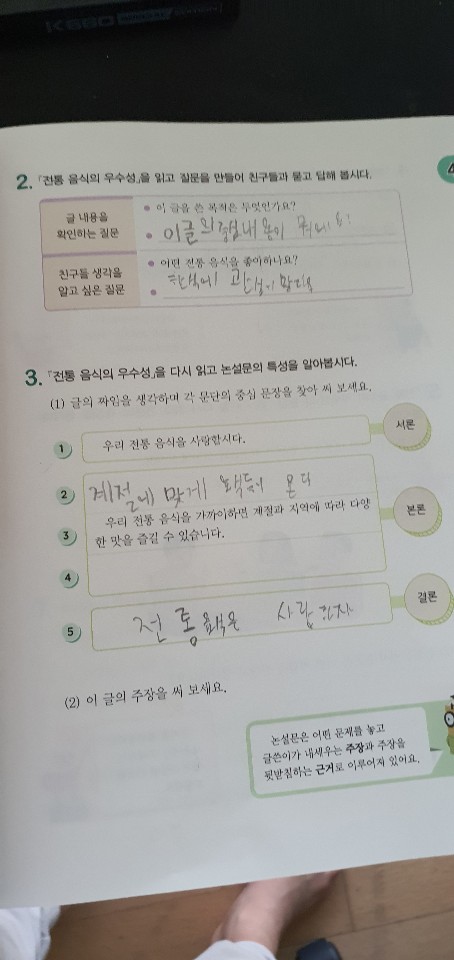 K680
2. 『전통 음식의 우수성』을 읽고 질문을 만들어 친구들과 묻고 답해 봅시다.
글 내용을
확인하는 질문
• 이 글을 쓴 목적은 무엇인가요?
• 이글의 내용이
친구들 생각을
알고 싶은 질문
• 어떤 전통 음식을 좋아하나요?
•
3. 『전통 음식의 우수성』을 다시 읽고 논설문의 특성을 알아봅시다.
(1) 글의 짜임을 생각하며 각 문단의 중심 문장을 찾아 써 보세요.
1 우리 전통 음식을 사랑합시다.
서론
2 계절에 맞게 온다
3 우리 전통 음식을 가까이하면 계절과 지역에 따라 다양
한 맛을 즐길 수 있습니다.
본론
4
5 전통 사랑 하자
결론
(2) 이 글의 주장을 써 보세요.
논설문은 어떤 문제를 놓고
글쓴이가 내세우는 주장과 주장을
뒷받침하는 근거로 이루어져 있어요.